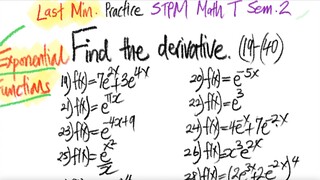 Last Min. Practice STPM Math T Sem. 2
Exponential Functions
Find the derivative. (19)-(40)
19) f(x)=7e^{2x}+3e^{4x}
20) f(x)=e^{-5x}
21) f(x)=e^{πx}
22) f(x)=e^3
23) f(x)=e^{-4x+9}
24) f(x)=4e^x+7e^{-2x}
25) f(x)=e^{x^2}/x
26) f(x)=x^3e^{2x}
28) f(x)=(2e^{3x}+2e^{-2x})^4